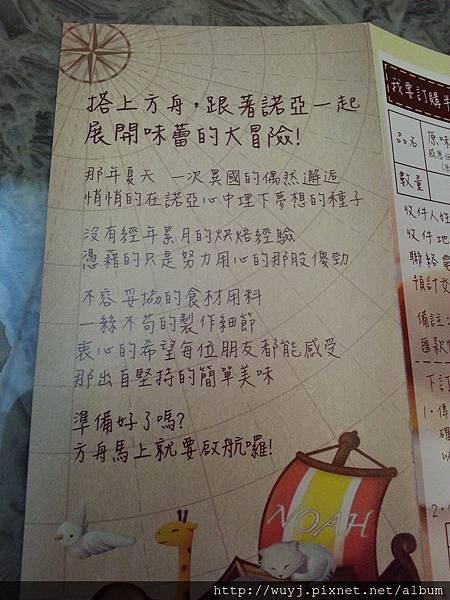 搭上方舟，跟著諾亞一起
展開味蕾的大冒險!
那年夏天 一次異國的偶然邂逅
悄悄的在諾亞心中埋下夢想的種子
沒有經年累月的烘焙經驗
憑藉的只是努力用心的那股傻勁
不容妥協的食材用料
一絲不苟的製作細節
衷心的希望每位朋友都能感受
那出自堅持的簡單美味
準備好了嗎?
方舟馬上就要啟航囉!
NOAH
我要訂購
品名 原味
數量
收件人姓
收件地
聯絡電
預計交
備註:
匯款
下訂
1.傳
確
以
2.
http://wuyj.pixnet.net/album